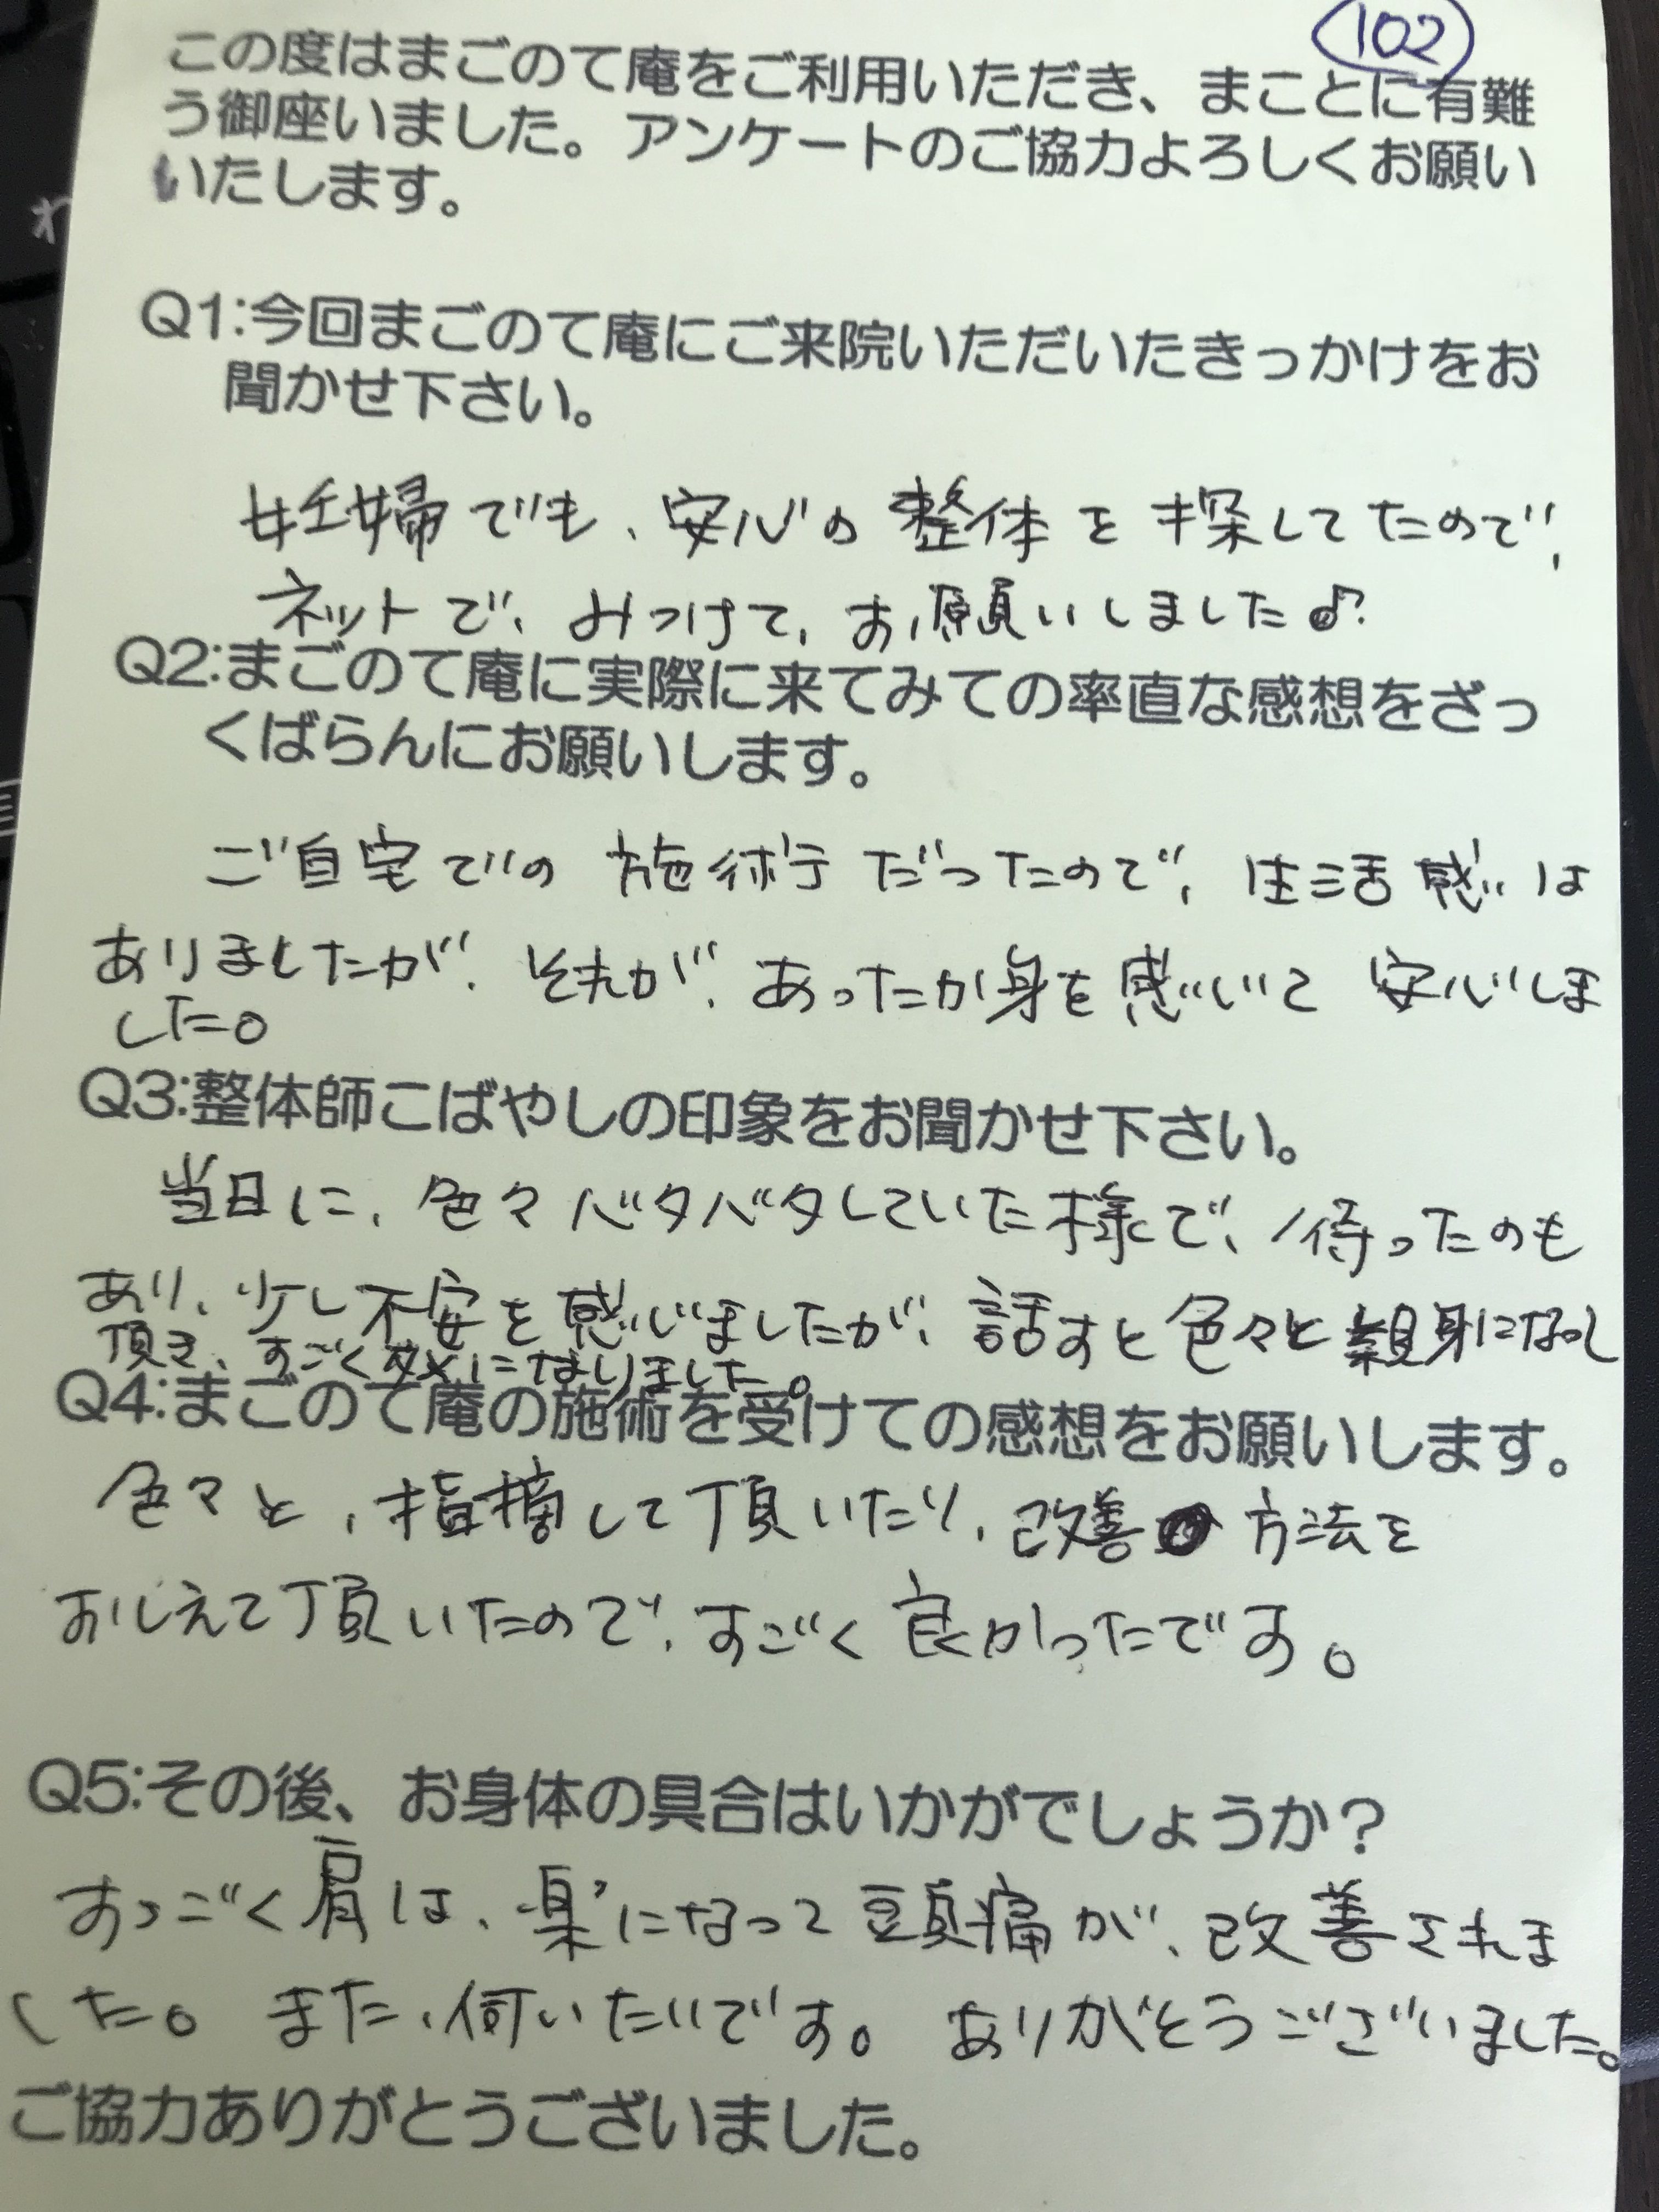 102
この度はまごのて庵をご利用いただき、まことに有難
う御座いました。アンケートのご協力よろしくお願い
いたします。
Q1:今回まごのて庵にご来院いただいたきっかけをお
聞かせ下さい。
妊婦でも、安心の整体を探してたので、
ネットで、みつけて、お願いしました♪
Q2:まごのて庵に実際に来てみての率直な感想をざっ
くばらんにお願いします。
ご自宅での施術だったので、生活感は
ありましたが、それが、あったか身を感じいて安心しま
した。
Q3:整体師こばやしの印象をお聞かせ下さい。
当日に、色々バタバタしていた様で、待ったのも
あり、少し不安を感じましたが、話すと色々と親身になって
頂き、すごく為になりました。
Q4:まごのて庵の施術を受けての感想をお願いします。
色々と、指摘して頂いたり、改善方法を
おしえて頂いたので、すごく良かったです。
Q5:その後、お身体の具合はいかがでしょうか？
すっごく肩は、楽になって頭痛が、改善されま
した。また、伺いたいです。ありがとうございました。
ご協力ありがとうございました。